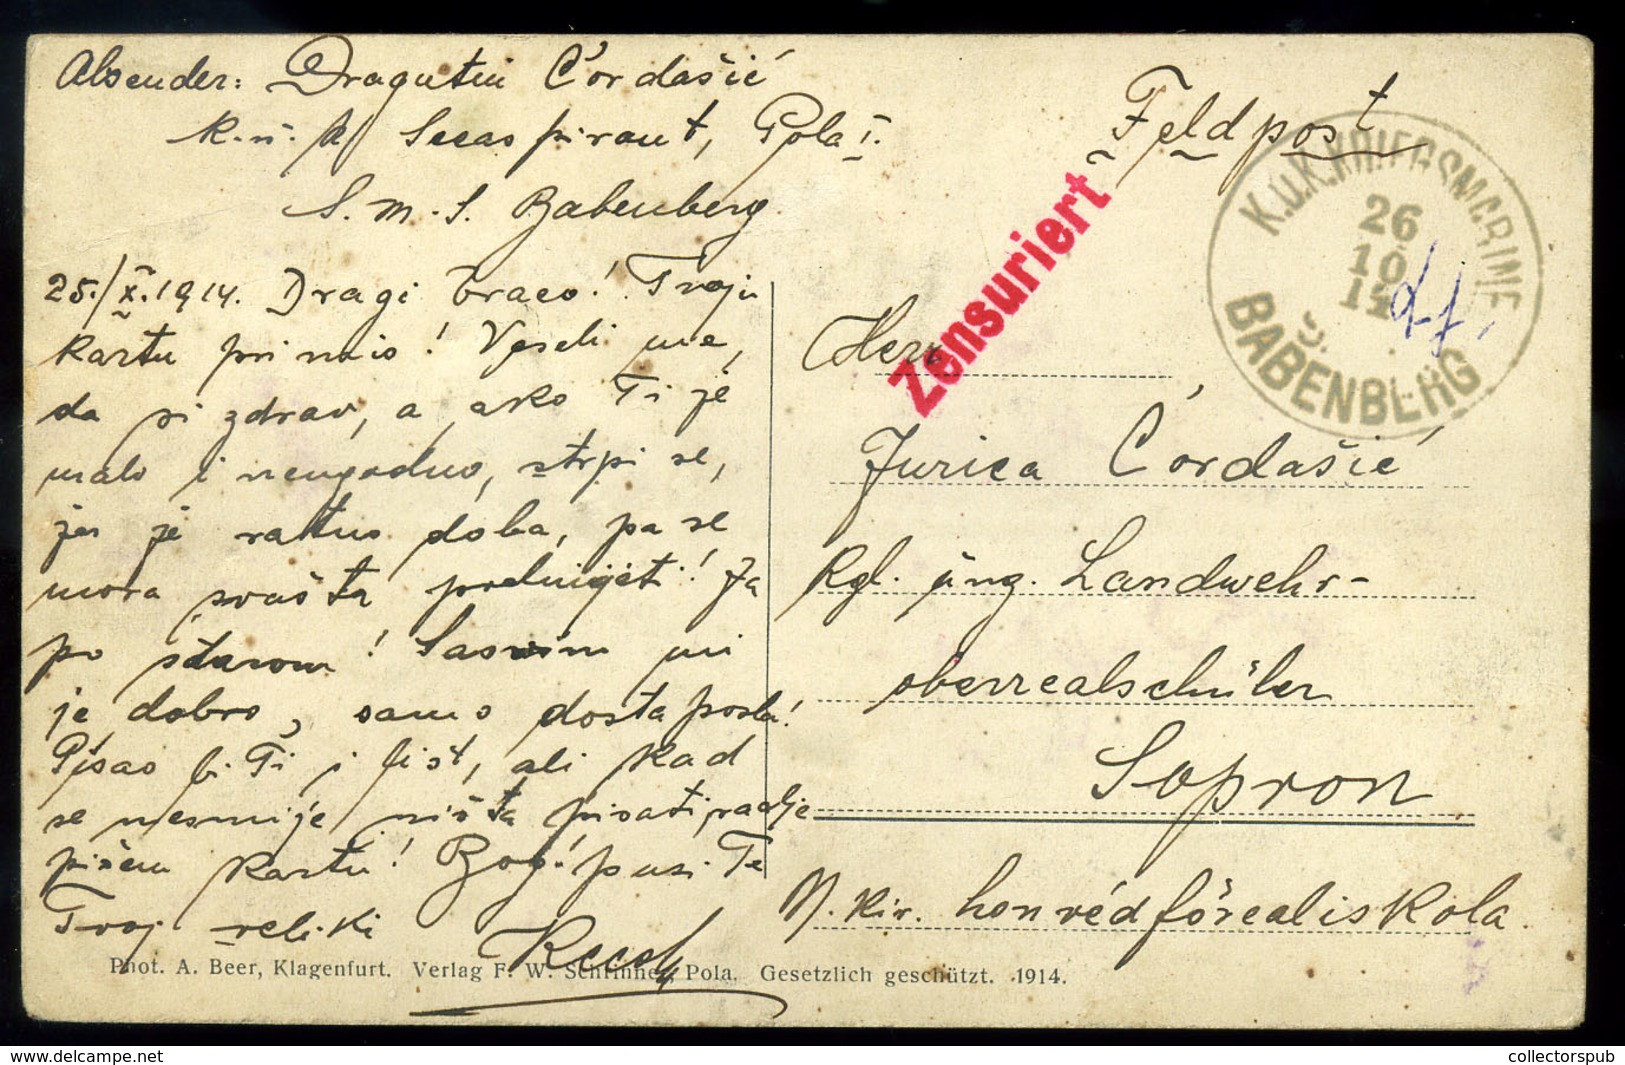 Absender: Dragutin Čordašić
k. u. k. Seeaspirant, Pola I.
S. M. S. Babenberg
25./X. 1914. Dragi braco! Tvoju
kartu primio! Veseli me,
da si zdrav, a ako Ti je
malo i neugodno, strpi se,
jer je ratno doba, pa se
mora svašta podnijeti! Ja
po starom! Sasvim mi
je dobro, samo dosta posla!
Pisao bi Ti i list, ali kad
se nesmije ništa pisati, radje
pišem kartu! Bog! pusi Te
Tvoj veliki
Feldpost
Zensuriert
K.u.K. KRIEGSMARINE
26
10
14
S.
BABENBERG
Herr
Jurica Čordašić
Kgl. ung. Landwehr-
oberrealschüler
Sopron
M. kir. honvéd főrealiskola
Phot. A. Beer, Klagenfurt. Verlag F. W. Schrinner, Pola. Gesetzlich geschützt. 1914.
www.delcampe.net
collectorspub